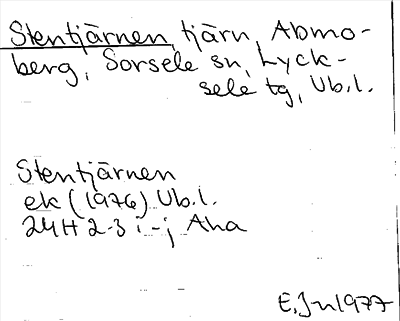 Stentjärnen, tjärn, Abmo-
berg, Sorsele sn, Lyck-
sele tg, Vb.l.
Stentjärnen
ek (1976) Vb.l.
24H 2-3 i-j Aha
E.Jn 1977